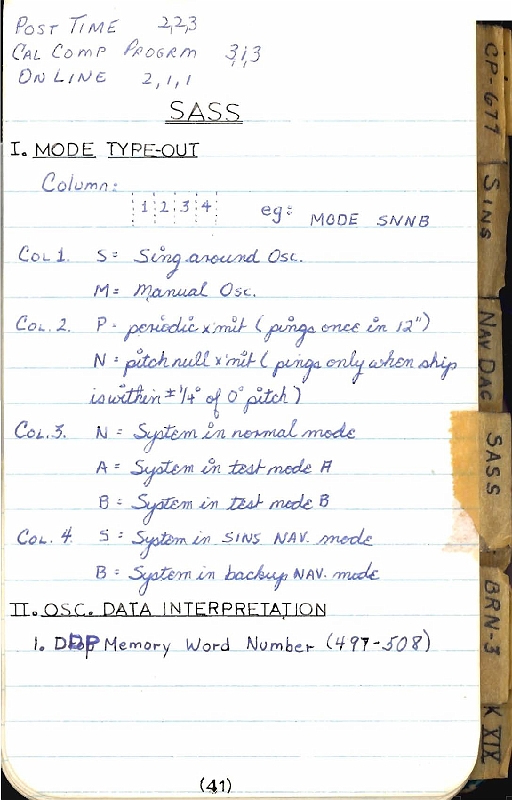 POST TIME 2,2,3
CAL COMP PROGRAM 3,1,3
ON LINE 2,1,1
SASS
I. MODE TYPE-OUT
Column:
1 2 3 4 eg: MODE SNNB
COL 1. S= Sing around Osc.
M= Manual Osc.
COL. 2. P- periodic x'mit (pings once in 12")
N= pitch null x'mit (pings only when ship
is within ±1/4° of 0° pitch)
COL. 3. N = System in normal mode
A = System in test mode A
B = System in test mode B
COL. 4. S = System in SINS NAV. mode
B = System in backup NAV. mode
II. OSC. DATA INTERPRETATION
1. DDP Memory Word Number (497-508)
(41)
CP-677
SINS
NAV DAC
SASS
BRN-3
K XIX